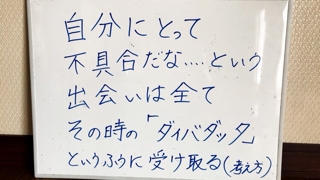 自分にとって
不具合だな‥‥という
出会いは全て
その時の「ダイバダッタ」
というふうに受け取る(考え方)